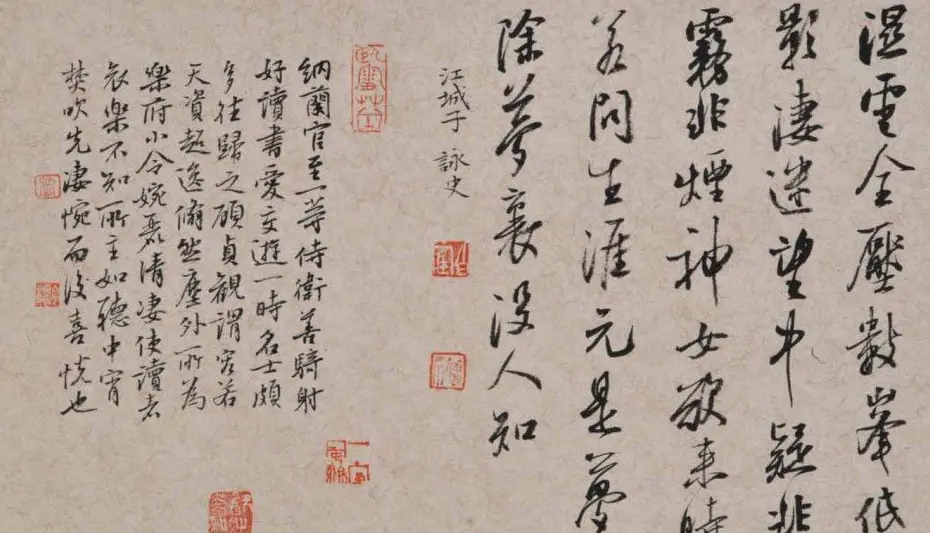 湿雲全壓數峯低
影淒迷望中疑非
霧非煙神女欲来時
若問生涯元是夢
除夢裏沒人知
江城子 詠史
納蘭官至一等侍衛善騎射
好讀書愛交遊一時名士頗
多往歸之顧貞觀謂容若
天資超逸翛然塵外所為
樂府小令婉麗清凄使讀者
哀樂不知所主如聽中宵
梵吹先凄惋而後喜悅也